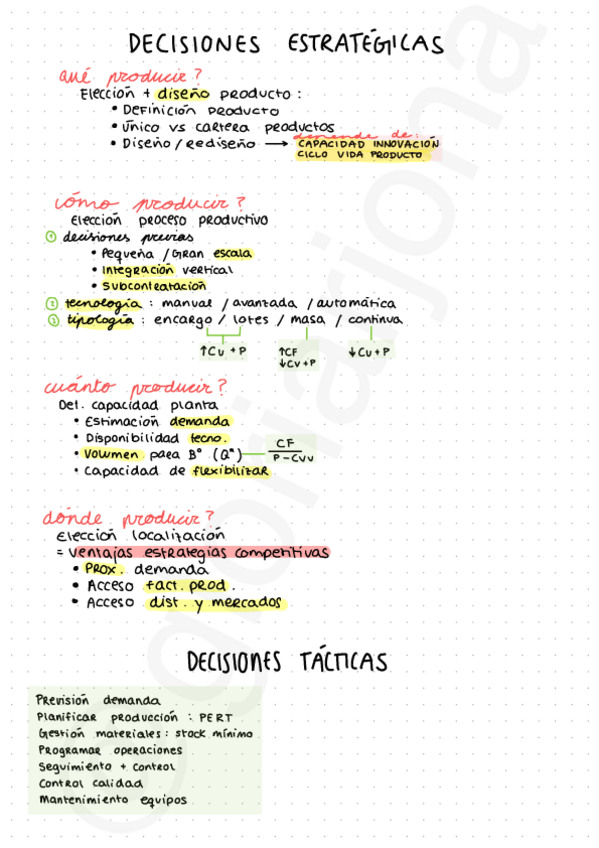 DECISIONES ESTRATÉGICAS
qué producir?
Elección + diseño producto:
• Definición producto
• Único vs cartera productos
• Diseño/Rediseño → depende de:
CAPACIDAD INNOVACIÓN
CICLO VIDA PRODUCTO
cómo producir?
Elección proceso productivo
① decisiones previas
• Pequeña/Gran escala
• Integración vertical
• Subcontratación
② tecnología: manual/avanzada/automática
③ tipología: encargo/lotes/masa/continua
↑Cu+P
↑CF
↓CV+P
↓Cu+P
cuánto producir?
Det. capacidad planta
• Estimación demanda
• Disponibilidad tecno.
• Volumen para Bº (Q*) CF
P-CVu
• Capacidad de flexibilizar
dónde producir?
Elección localización
= ventajas estrategias competitivas
• Prox. demanda
• Acceso fact. prod.
• Acceso dist. y mercados
DECISIONES TÁCTICAS
Previsión demanda
Planificar producción: PERT
Gestión materiales: stock mínimo
Programar operaciones
Seguimiento + control
Control calidad
Mantenimiento equipos